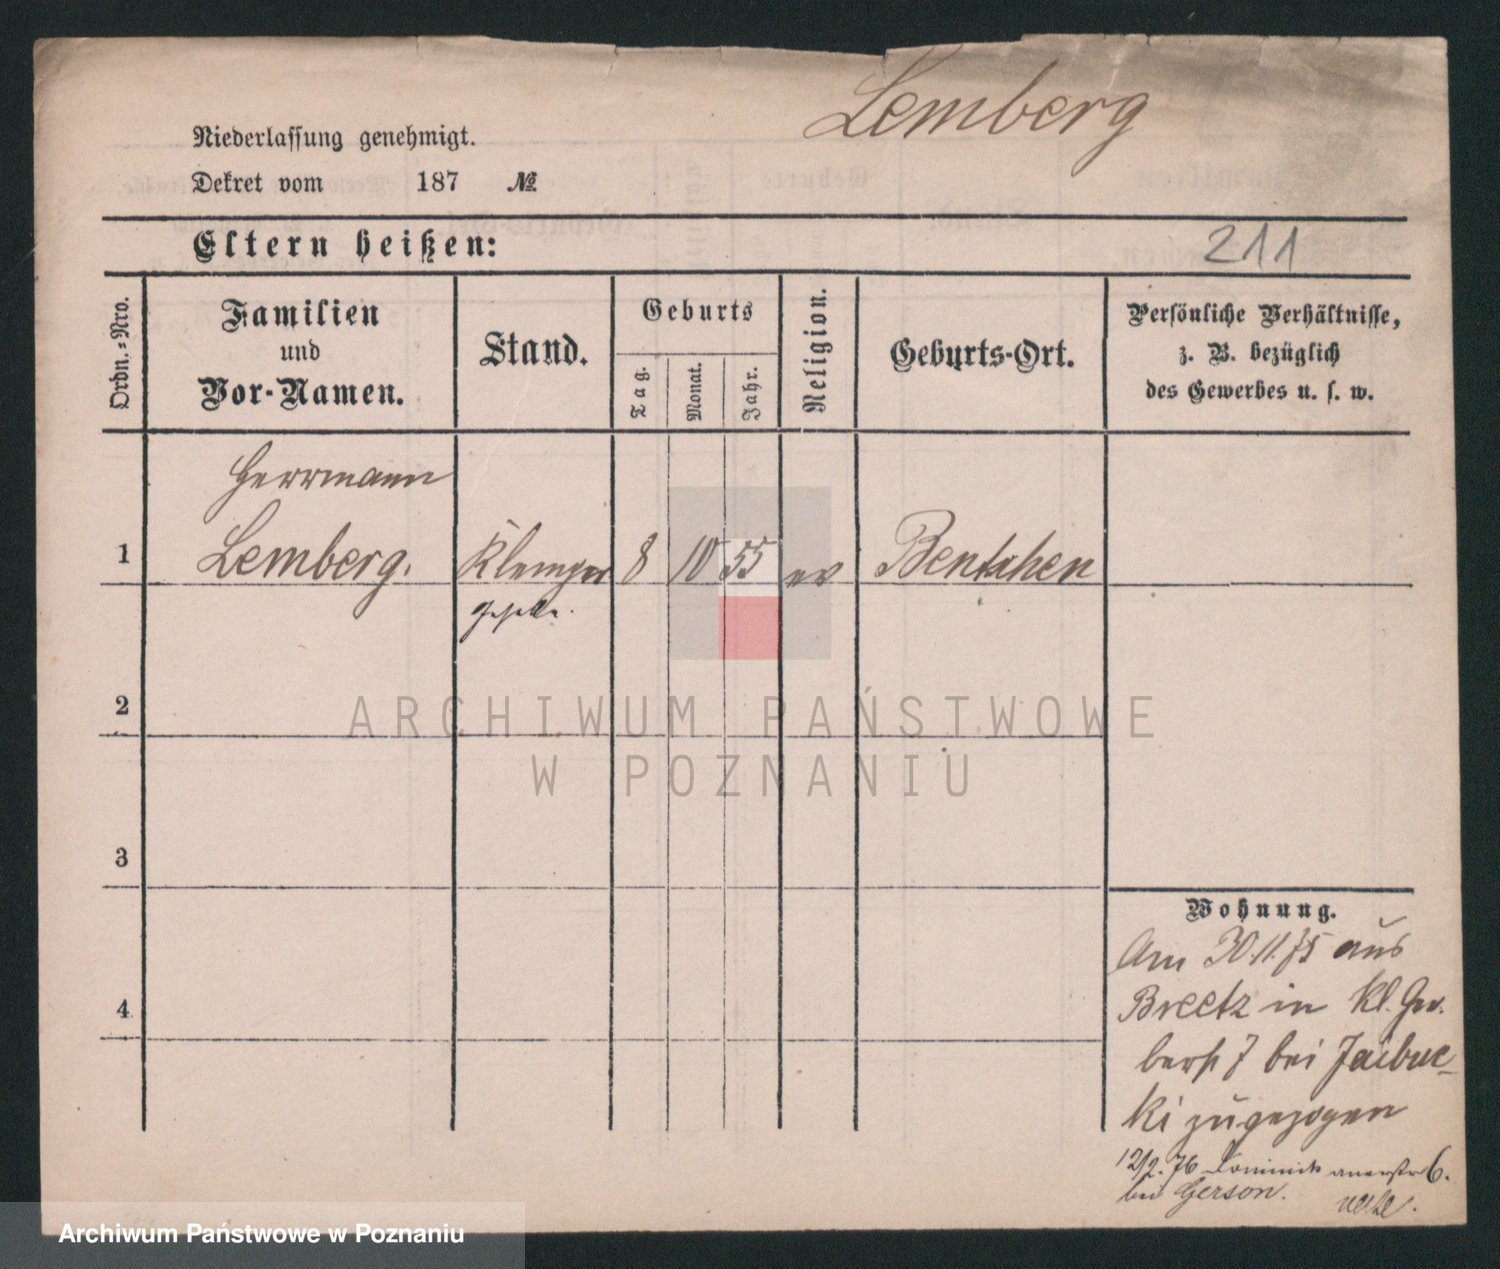 Lemberg
Niederlassung genehmigt.
Dekret vom 187 №
Eltern heißen:
211
Ordn.-Nro.
Familien
und
Vor-Namen.
Stand.
Geburts
Tag.
Monat.
Jahr.
Religion.
Geburts-Ort.
Persönliche Verhältnisse,
z. B. bezüglich
des Gewerbes u. s. w.
Herrmann
1 Lemberg. Klempner 8 10 55 ev Bentschen
Geselle.
2
ARCHIWUM PAŃSTWOWE
W POZNANIU
3
Wohnung.
Am 30.11.75 aus
Breetz in Kl. Ger-
4
berst 7 bei Jaibuc-
ki zugezogen
12/2. 76 6.
bei Gerson.
Archiwum Państwowe w Poznaniu